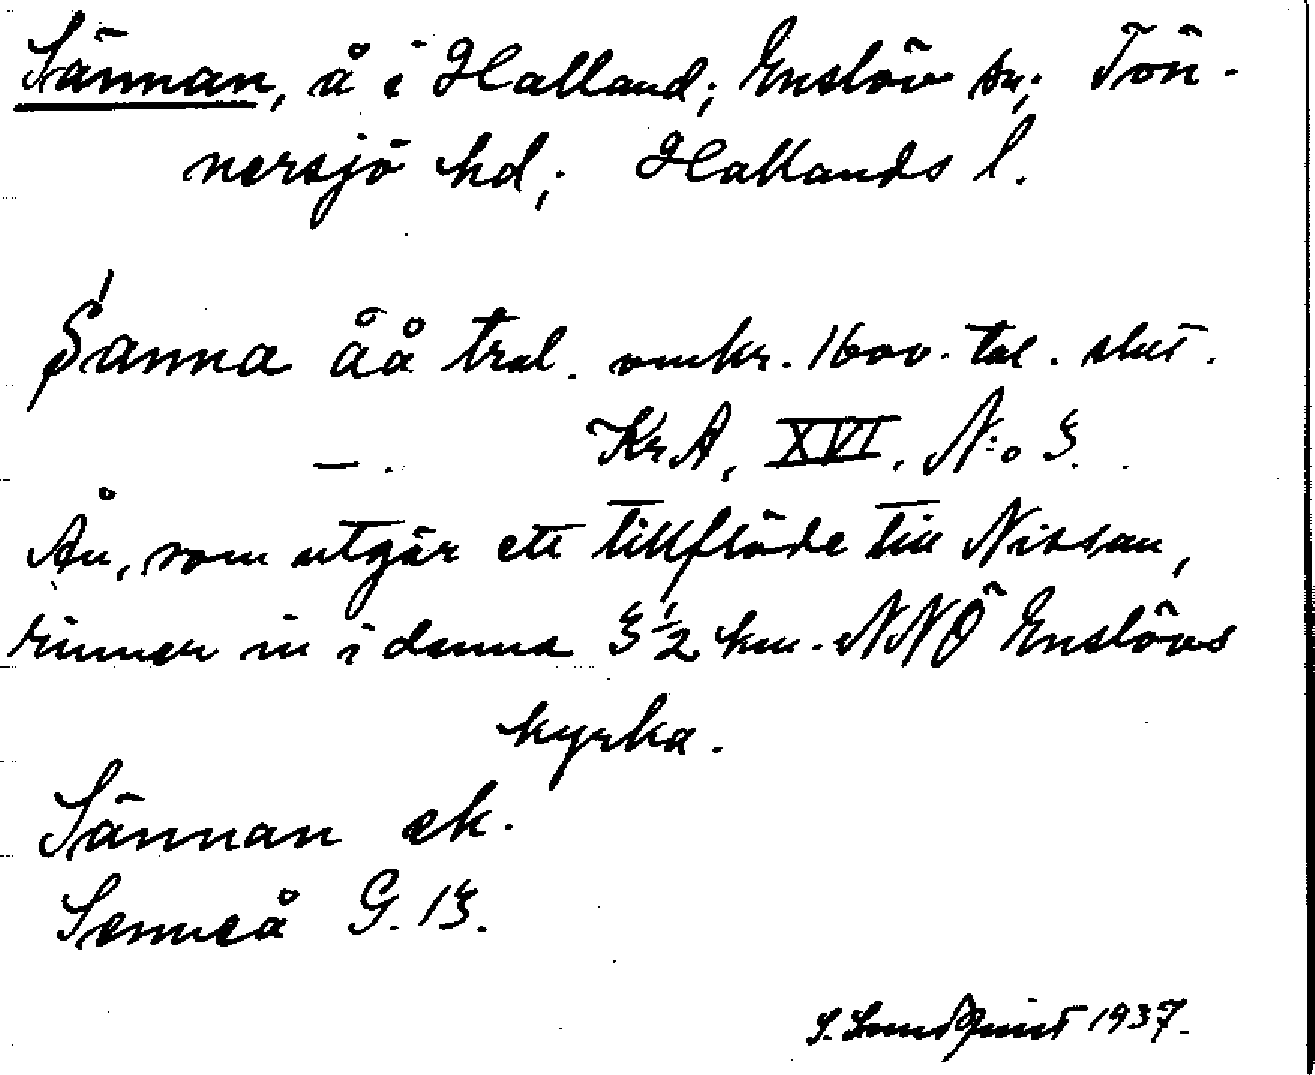 Sännan, å i Halland; Enslöv sn; Tön-
nersjö hd; Hallands l.
Sanna åå tral. omkr. 1600-tal. slut.
—. KrA, XVI, N:o 3.
Ån, som utgör ett tillflöde till Nissan,
rinner in i denna 3 1/2 km. NNÖ Enslövs
kyrka.
Sännan ek.
Senneå G. 13.
S. Lundquist 1937.